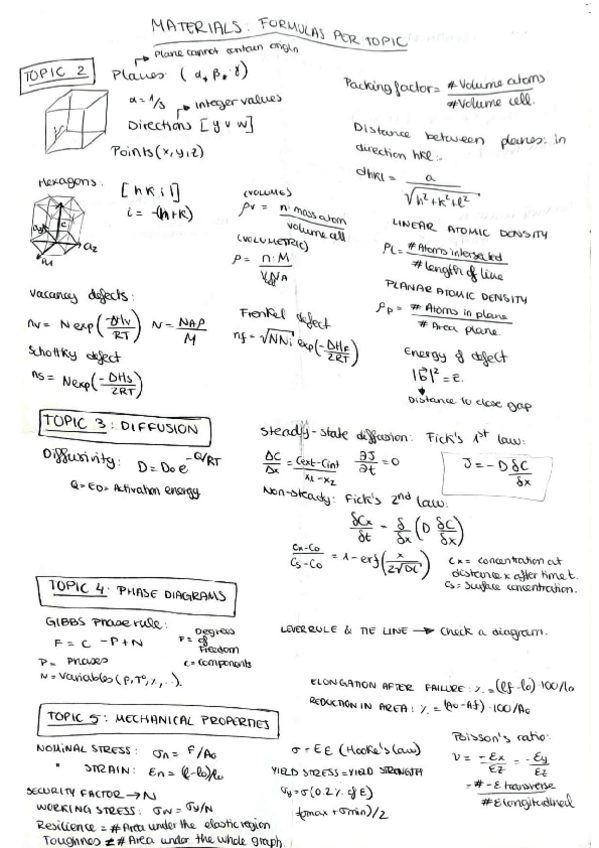 MATERIALS: FORMULAS PER TOPIC
TOPIC 2
Planes (α, β, γ)
→ Plane cannot contain origin
α = 1/3
→ integer values
Directions [u v w]
Points (x, y, z)
Packing factor = # Volume atoms / # Volume cell.
Distance between planes: in
direction hkl:-
dhkl = a / √h²+k²+l²
Hexagons:
[h k i l]
i = -(h+k)
a2
a1
c
(VOLUMES)
ρv = n·mass atom / volume cell
(VOLUMETRIC)
ρ = n·M / Vcell NA
LINEAR ATOMIC DENSITY
ρL = # Atoms intersected / # length of line
PLANAR ATOMIC DENSITY
ρp = # Atoms in plane / # Area plane.
Vacancy defects:
nv = N exp(-ΔHv / RT) N = NAρ / M
Schottky defect
ns = N exp(-ΔHs / 2RT)
Frenkel defect
nf = √NNi exp(-ΔHf / 2RT)
Energy of defect
|b|² = E.
Distance to close gap
TOPIC 3: DIFFUSION
Diffusivity: D = Do e^-Q/RT
Q = ED = Activation energy
Steady-state diffusion: Fick's 1st law:
ΔC/Δx = Cext-Cint / x1-x2 ∂J/∂t = 0
J = -D δC/δx
Non-steady: Fick's 2nd law:
δCx/δt = δ/δx (D δC/δx)
Cx-Co / Cs-Co = 1 - erf(x / 2√Dt)
Cx = concentration at
distance x after time t.
Cs = Surface concentration.
TOPIC 4: PHASE DIAGRAMS
GIBBS Phase rule:
F = C - P + N
F = Degrees
of
Freedom
P = Phases
C = components
N = Variables (P, Tº, ...).
LEVER RULE & TIE LINE → Check a diagram.
ELONGATION AFTER FAILURE: % = (lf - lo)·100/lo
REDUCTION IN AREA: % = (Ao - Af)·100/Ao
TOPIC 5: MECHANICAL PROPERTIES
NOMINAL STRESS: σn = F/Ao
" STRAIN: εn = (l-lo)/lo
SECURITY FACTOR → N
WORKING STRESS: σw = σy/N
Resilience = # Area under the elastic region
Toughness ≠ # Area under the whole graph.
σ = Eε (Hooke's law)
YIELD STRESS = YIELD STRENGTH
σy = σ(0.2% of ε)
(σmax + σmin)/2
Poisson's ratio:
ν = -εx/εz = -εy/εz
= # - ε transverse / # ε longitudinal